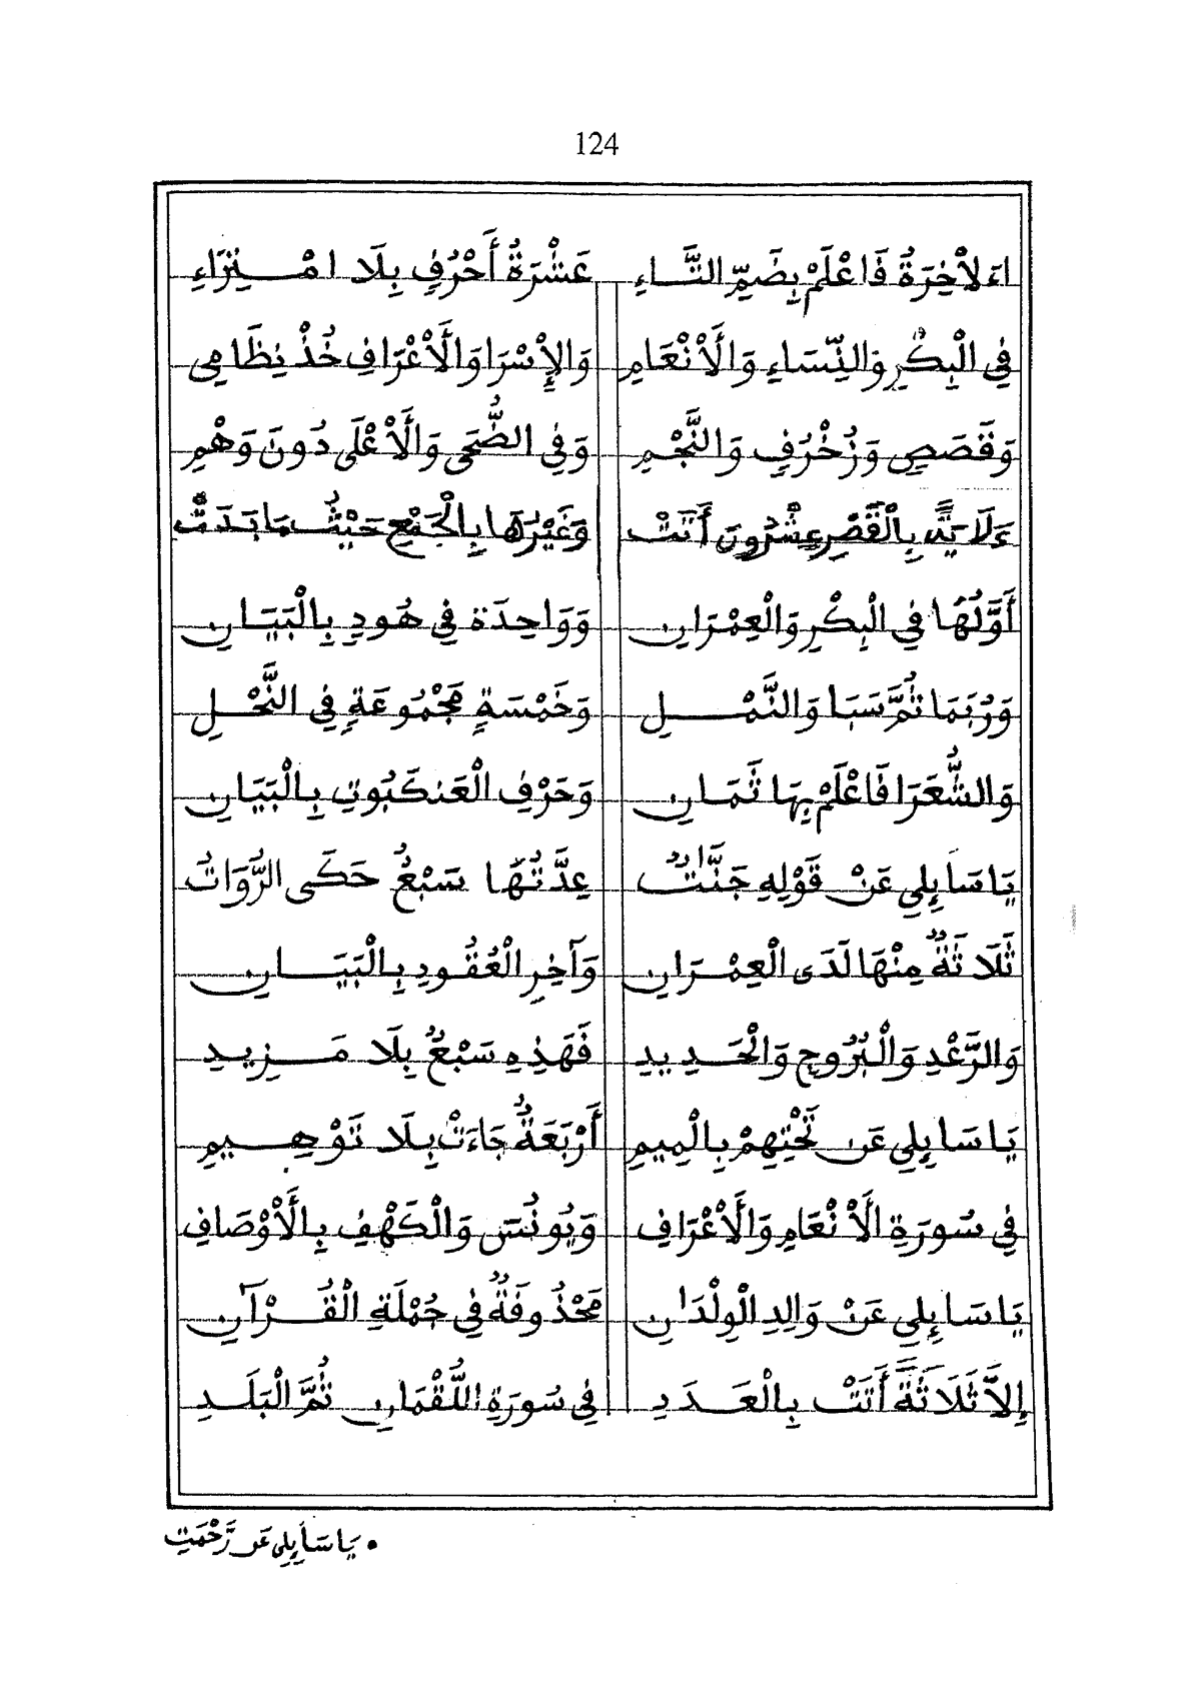 124
اَءَلاْخِرَةُ فَاعْلَمْ بِضَمِّ التَّـاءِ عَشْرَةُ أَحْرُفٍ بِلَا امْـتِرَاءِ
فِي الْبِكْرِ وَالنِّسَاءِ وَالَأنْعَامِ وَالإِسْرَا وَالَأعْرَافِ خُذْ نِظَامِي
وَقَصَصٍ وَزُخْرُفٍ وَالنَّجْمِ وَفِي الضُّحَى وَالَأعْلَى دُونَ وَهْمِ
ءَلَايَةً بِالْقَصْرِ عِشْرُونَ أَتَتْ وَغَيْرُهَا بِالْجَمْعِ حَيْثُـمَا بَدَتْ
أَوَّلُهَا فِي الْبِكْرِ وَالْعِمْرَانِ وَوَاحِدَة فِي هُودِ بِالْبَيَـانِ
وَرُبَمَا ثُمَّ سَبَا وَالنَّمْـلِ وَخَمْسَةٍ مَجْمُوعَةٍ فِي النَّحْـلِ
وَالشُّعَرَا فَاعْلَمْ بِهَا ثَمَـانِ وَحَرْفِ الْعَنكَبُوتِ بِالْبَيَانِ
يَاسَايِلِي عَنْ قَوْلِهِ جَنَّاتٌ عِدَّتُهَا سَبْعٌ حَكَى الرُّوَاتُ
ثَلَاثَةٌ مِنْهَا لَدَى الْعِمْـرَانِ وَآخِرِ الْعُقُودِ بِالْبَيَـانِ
وَالرَّعْدِ وَالْبُرُوجِ وَالْحَـدِيدِ فَهَذِهِ سَبْعٌ بِلَا مَـزِيدِ
يَاسَايِلِي عَن تَحْتِهِمْ بِالْمِيمِ أَرْبَعَةٌ جَاءَتْ بِلَا تَوْهِـيمِ
فِي سُورَةِ الَأنْعَامِ وَالَأعْرَافِ وَيُونُسَ وَالْكَهْفِ بِالَأوْصَافِ
يَاسَايِلِي عَنْ وَالِدِ الْوِلْدَانِ مَحْذُوفَةٌ فِي جُمْلَةِ الْقُـرْآنِ
إِلاَّ ثَلَاثَةً أَتَتْ بِالْعَـدَدِ فِي سُورَةِ اللُّقْمَانِ ثُمَّ الْبَلَـدِ
• يَاسَايِلِي عَن رَّحْمَتِ